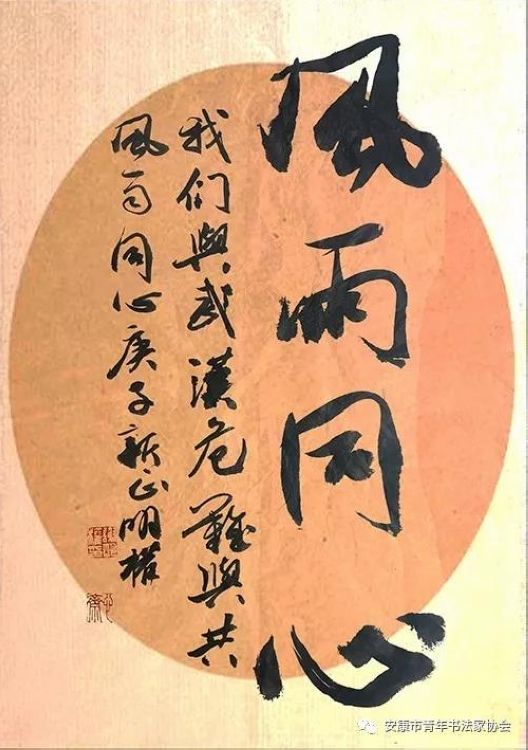 風雨同心
我们與武漢危難與共
風雨同心庚子新正明權
安康市青年书法家协会